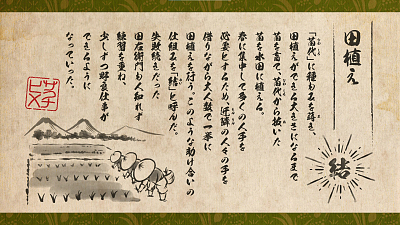 田植え
「苗代」に種もみを蒔き、
田植えができる大きさになるまで
苗を育て、苗代から抜いた
苗を水田に植える。
春に集中して多くの人手を
必要とするため、近隣の人々の手を
借りながら大人数で一斉に
田植えを行う。このような助け合いの
仕組みを「結」と呼んだ。
失敗続きだった
田右衛門も人知れず
練習を重ね、
少しずつ野良仕事が
できるように
なっていった。
結
サチヒメ